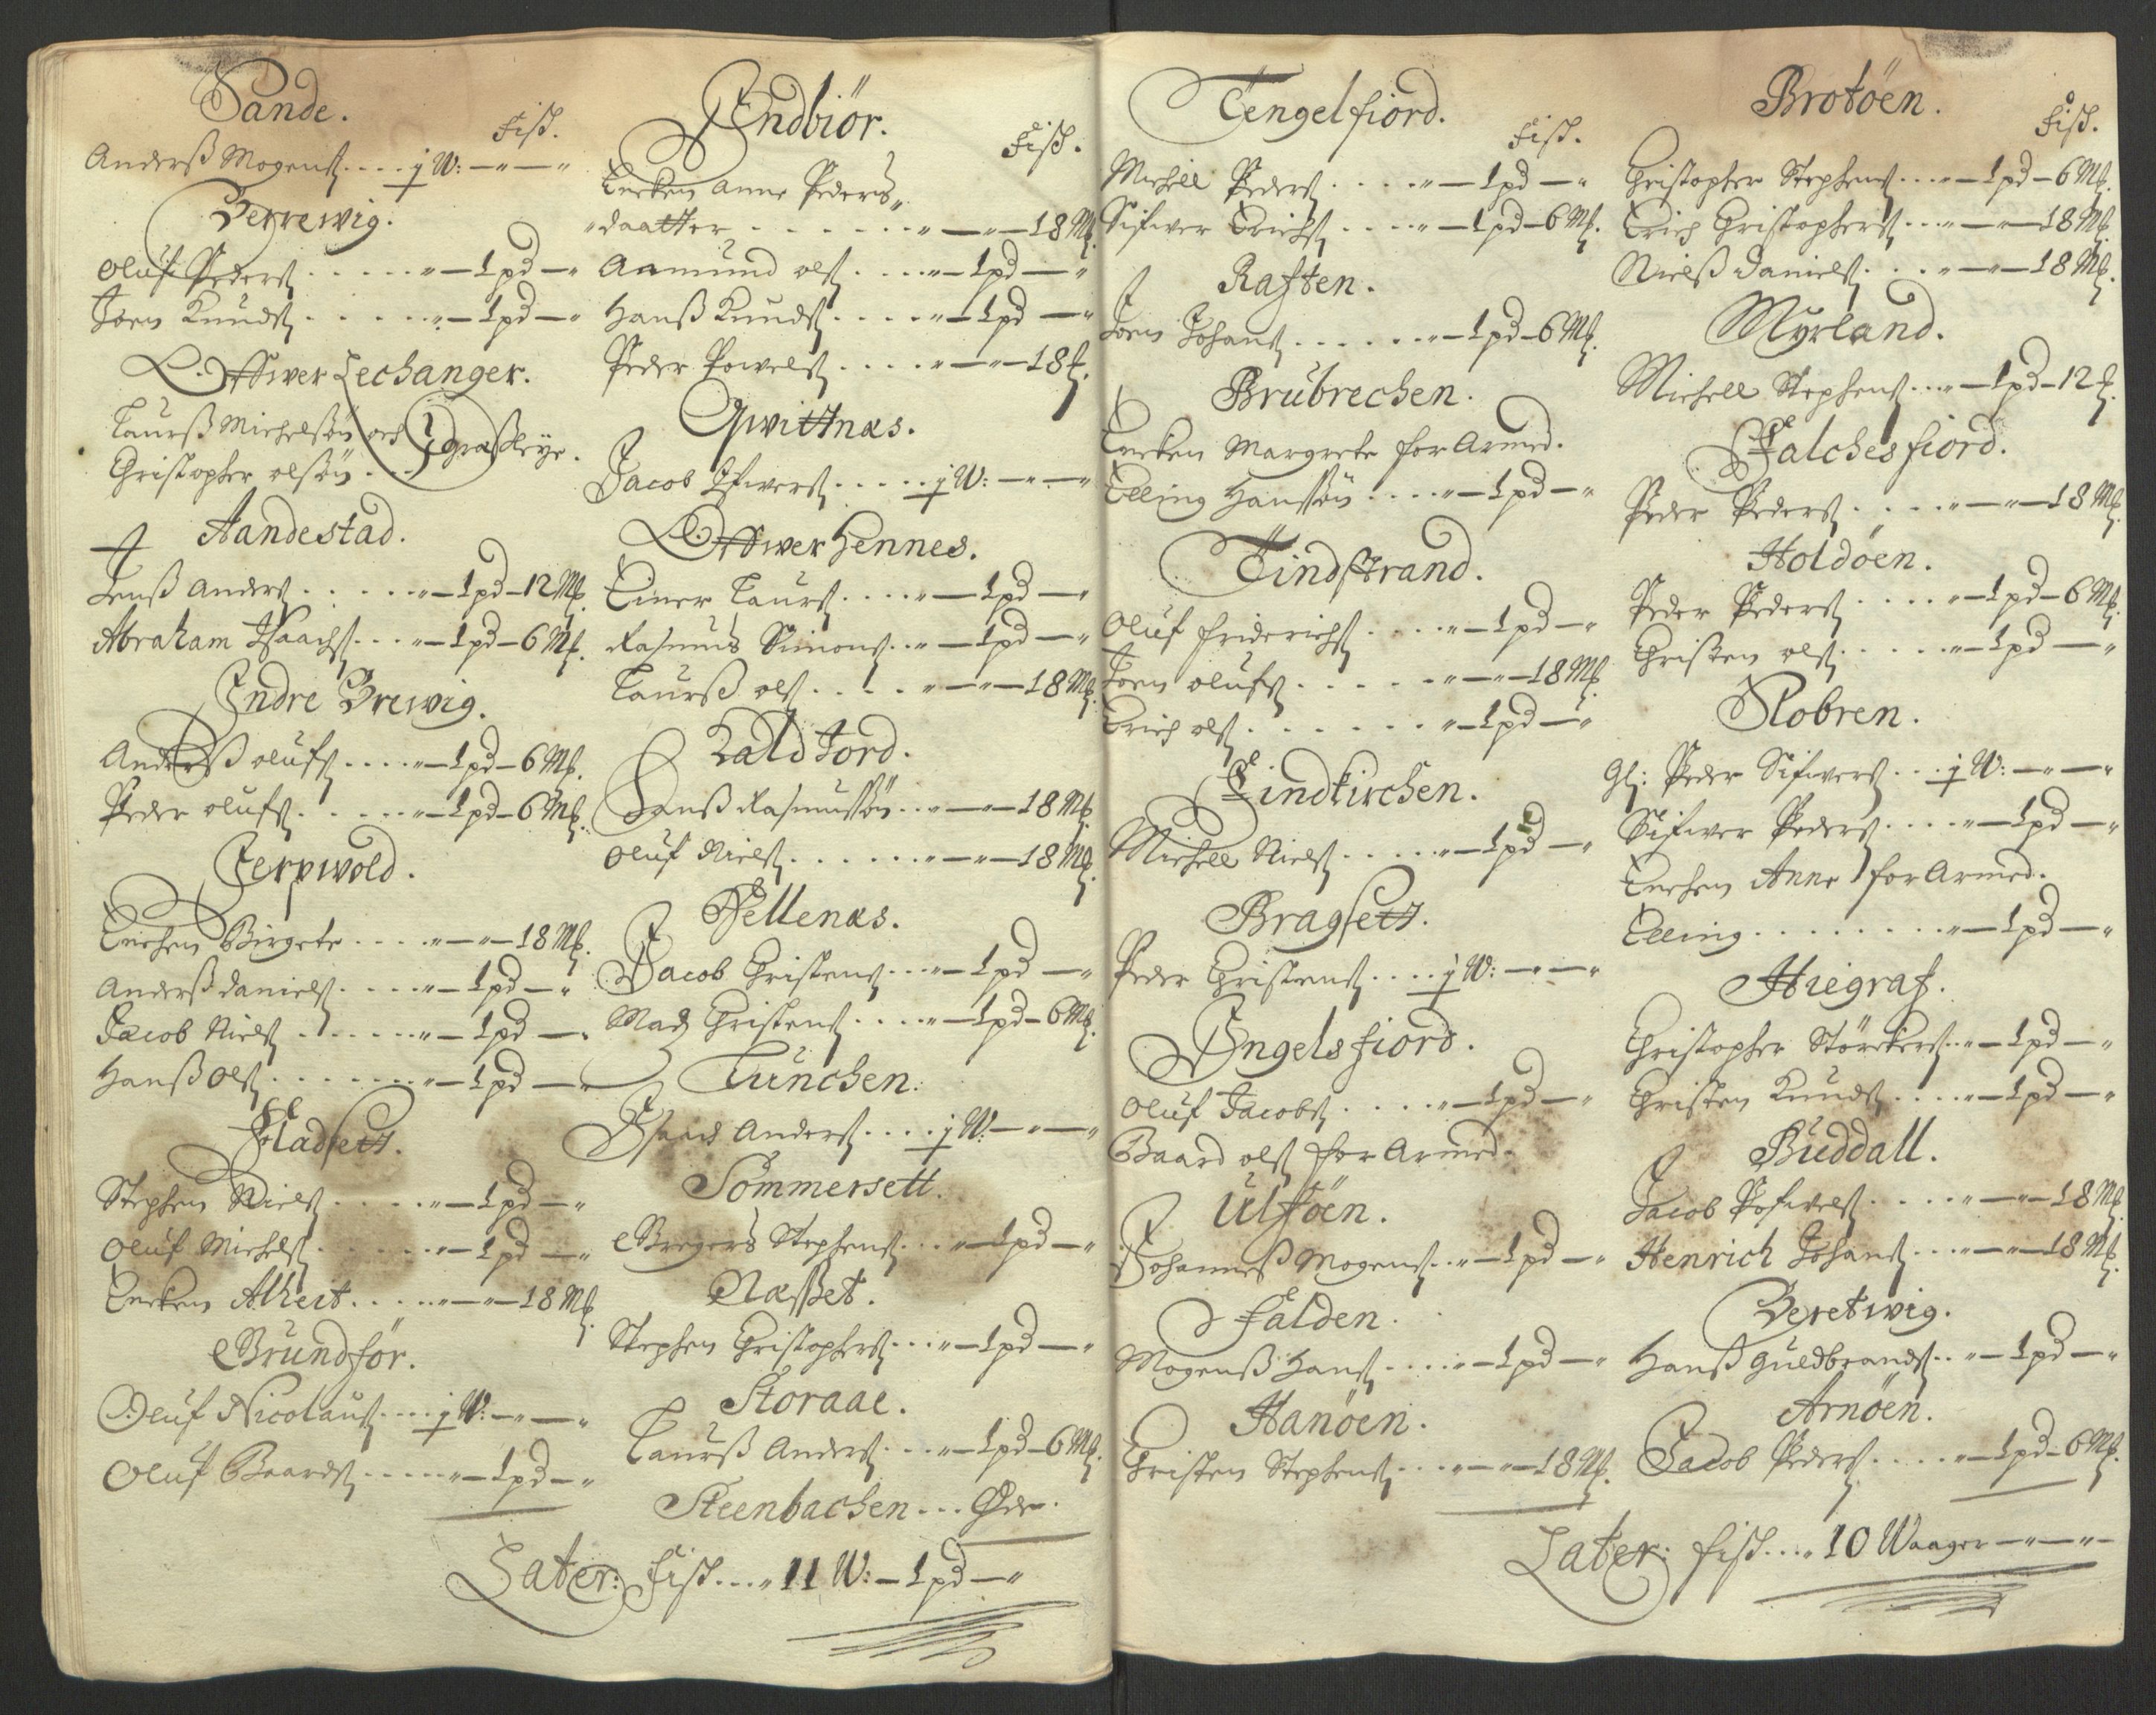 Sande.
Fisk.
Anderß Mogens. .... j W: — " — "
Berrewig.
Oluf Peders. ..... " — 1 pd — "
Joen Knuds. ..... " — 1 pd — "
Offwer Lechanger.
Laurß Michelsøn och
Christopher olsøn ... Græsleye.
Aandestad.
Jenß Anders. ..... " — 1 pd — 12 Mk.
Abraham Isaachs. ... " — 1 pd — 6 Mk.
Indre Brewig.
Anderß olufs. .... " — 1 pd — 6 Mk.
Peder olufs. ..... " — 1 pd — 6 Mk.
Jerpwold.
Enchen Birgete .... " — " — 18 Mk.
Anderß daniels. .... " — 1 pd — "
Jacob Niels. ...... " — 1 pd — "
Hanß Ols. ....... " — 1 pd — "
Fladsett.
Stephen Niels. ..... " — 1 pd — "
Oluf Michels. ..... " — 1 pd — "
Encken Alheit ..... " — " — 18 Mk.
Grundfør.
Oluf Nicolaus. .... j W: — " — "
Oluf Baards. ..... " — 1 pd — "
Indbiør.
Fisk.
Encken Anne Peders"
"daatter ....... " — " — 18 Mk.
Aamund ols. .... " — 1 pd — "
Hanß Knuds. .... " — 1 pd — "
Peder Powels. .... " — " — 18
Qwittnæs.
Jacob Ifwers. .... j W: — " — "
Offwer Hennes.
Einer Laurs. .... " — 1 pd — "
Rasmus Simons. .. " — 1 pd — "
Laurß ols. .... " — " — 18 Mk.
Kald Jord.
Hanß Rasmussøn .. " — " — 18 Mk.
Oluf Niels. ...... " — " — 18 Mk.
Pellenæs.
Jacob Christens. ... " — 1 pd — "
Mads Christens. .... " — 1 pd — 6 Mk.
Tunchen.
Anders. .... j W: — " — "
Sommersett.
Gregers Stephens. ... " — 1 pd — "
Næsset.
Stephen Christophers. ... " — 1 pd — "
Storaae.
Laurß Anders. ... " — 1 pd — 6 Mk.
Steenbachen ... Øde.
Later: Fisk .... 11 W: — 1 pd — "
Tengelfiord.
Fisk.
Michell Peders. .... " — 1 pd — "
Sifwer Erichs. .... " — 1 pd — 6 Mk.
Raften.
Joen Johans. ...... " — 1 pd — 6 Mk.
Brubrechen.
Encken Margrete for Armod.
Elling Hanssøn .... " — 1 pd — "
Tindstrand.
Oluf Friderichs. .... " — 1 pd — "
Joen olufs. ..... " — " — 18 Mk.
Erich ols. ...... " — 1 pd — "
Findkirchen.
Michell Niels. ..... " — 1 pd — "
Bragsett.
Peder Christens. .... j W: — " — "
Ingelsfiord.
Oluf Jacobs. .... " — 1 pd — "
Baard ols. for Armod.
Ulføen.
Johannes Mogens. .. " — 1 pd — "
Falden.
Mogenß Hans. .... " — 1 pd — "
Hanøen.
Christen Stephens. ... " — " — 18 Mk.
Brotøen.
Fisk.
Christopher Stephens. ... " — 1 pd — 6 Mk.
Erich Christophers. ... " — " — 18 Mk.
Nielß daniels. ... " — " — 18 Mk.
Myrland.
Michell Stephens. ... " — 1 pd — 12
Falchesfiord.
Peder Peders. .... " — " — 18 Mk.
Holdøen.
Peder Peders. .... " — 1 pd — 6 Mk.
Christen ols. ..... " — 1 pd — "
Slobren.
Gl: Peder Sifwers. ... j W: — " — "
Sifwer Peders. .... " — 1 pd — "
Enchen Anne for Armod.
Elling ......... " — 1 pd — "
Hiegraf.
Christopher Størckers. .. " — 1 pd — "
Christen Knuds. .... " — 1 pd — "
Buddall.
Jacob Pofwels. .... " — " — 18 Mk.
Henrich Johans. ... " — " — 18 Mk.
Beretwig.
Hanß Guldbrands. .. " — 1 pd — "
Arnøen.
Jacob Peders. .... " — 1 pd — 6 Mk.
Later: fisk .... 10 Waager — " — " —